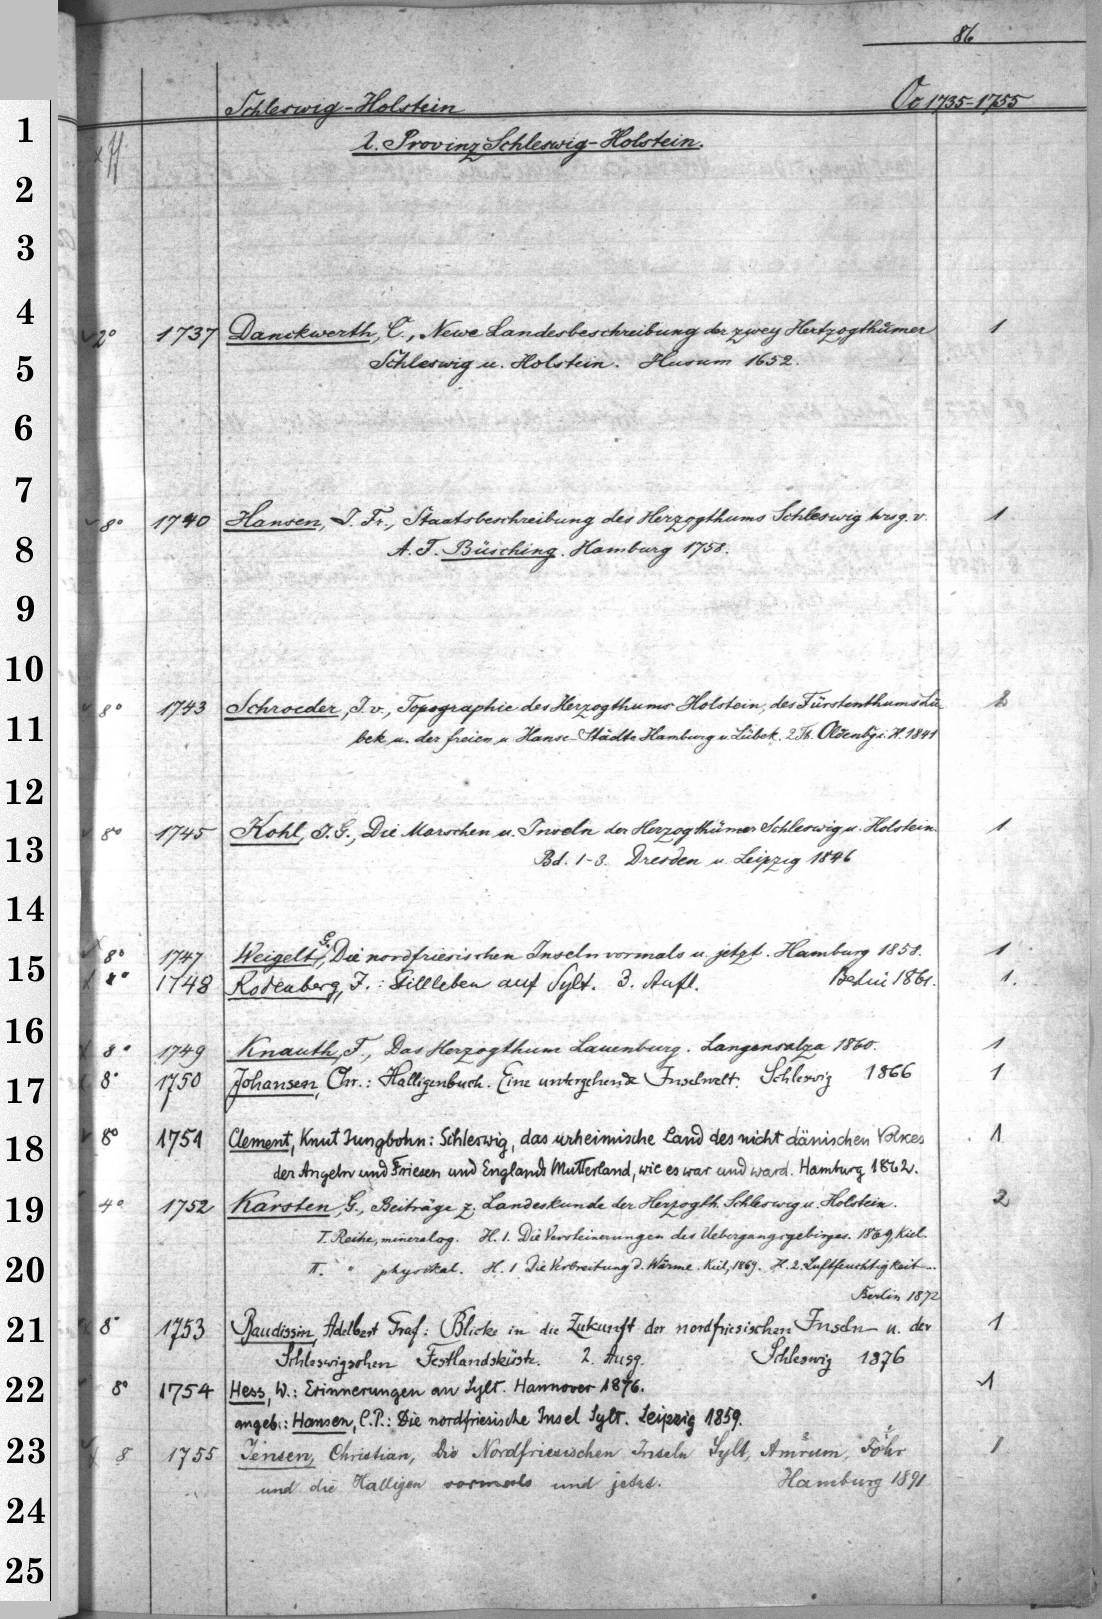 86
Schleswig-Holstein Oo 1735-1755
l. Provinz Schleswig-Holstein.
1
2
3
4
2° 1737 Danckwerth, C., Newe Landesbeschreibung der zwey Hertzogthümer 1
Schleswig u. Holstein. Husum 1652.
5
6
7
8° 1740 Hansen, J. Fr., Staatsbeschreibung des Herzogthums Schleswig hrsg. v. 1
A. F. Büsching. Hamburg 1758.
8
9
10
8° 1743 Schroeder, J. v., Topographie des Herzogthums Holstein, des Fürstenthums Lü- 2
bek u. der freien u Hanse-Städte Hamburg u. Lübek. 2 Th. Oldenbg i. H. 1841
11
12
8° 1745 Kohl, J. G., Die Marschen u. Inseln der Herzogthümer Schleswig u. Holstein. 1
Bd. 1-3. Dresden u. Leipzig 1846
13
14
8° 1747 Weigelt, G., Die nordfriesischen Inseln vormals u. jetzt. Hamburg 1858. 1
15
8° 1748 Rodenberg, J.: Stillleben auf Sylt. 3. Aufl. Berlin 1861. 1.
16
8° 1749 Knauth, F., Das Herzogthum Lauenburg. Langensalza 1860. 1
17
8° 1750 Johansen, Chr.: Halligenbuch. Eine untergehende Inselwelt. Schleswig 1866 1
18
8° 1751 Clement, Knut Jungbohn: Schleswig, das urheimische Land des nicht dänischen Volkes 1
der Angeln und Friesen und Englands Mutterland, wie es war und ward. Hamburg 1862.
19
4° 1752 Karsten, G., Beiträge z. Landeskunde der Herzogth. Schleswig u. Holstein. 2
I. Reihe, mineralog. H. 1. Die Versteinerungen des Uebergangsgebirges. 1869, Kiel.
20
II. " physikal. H. 1 Die Verbreitung d. Wärme. Kiel, 1869. H. 2. Luftfeuchtigkeit...
Berlin 1872
21
8° 1753 Baudissin, Adelbert Graf: Blicke in die Zukunft der nordfriesischen Inseln u. der 1
Schleswigschen Festlandsküste. 2. Ausg. Schleswig 1876
22
8° 1754 Hess, W.: Erinnerungen an Sylt. Hannover 1876. 1
angeb.: Hansen, C. P.: Die nordfriesische Insel Sylt. Leipzig 1859.
23
8 1755 Jensen, Christian, Die Nordfriesischen Inseln Sylt, Amrum, Föhr 1
und die Halligen vormals und jetzt. Hamburg 1891
24
25